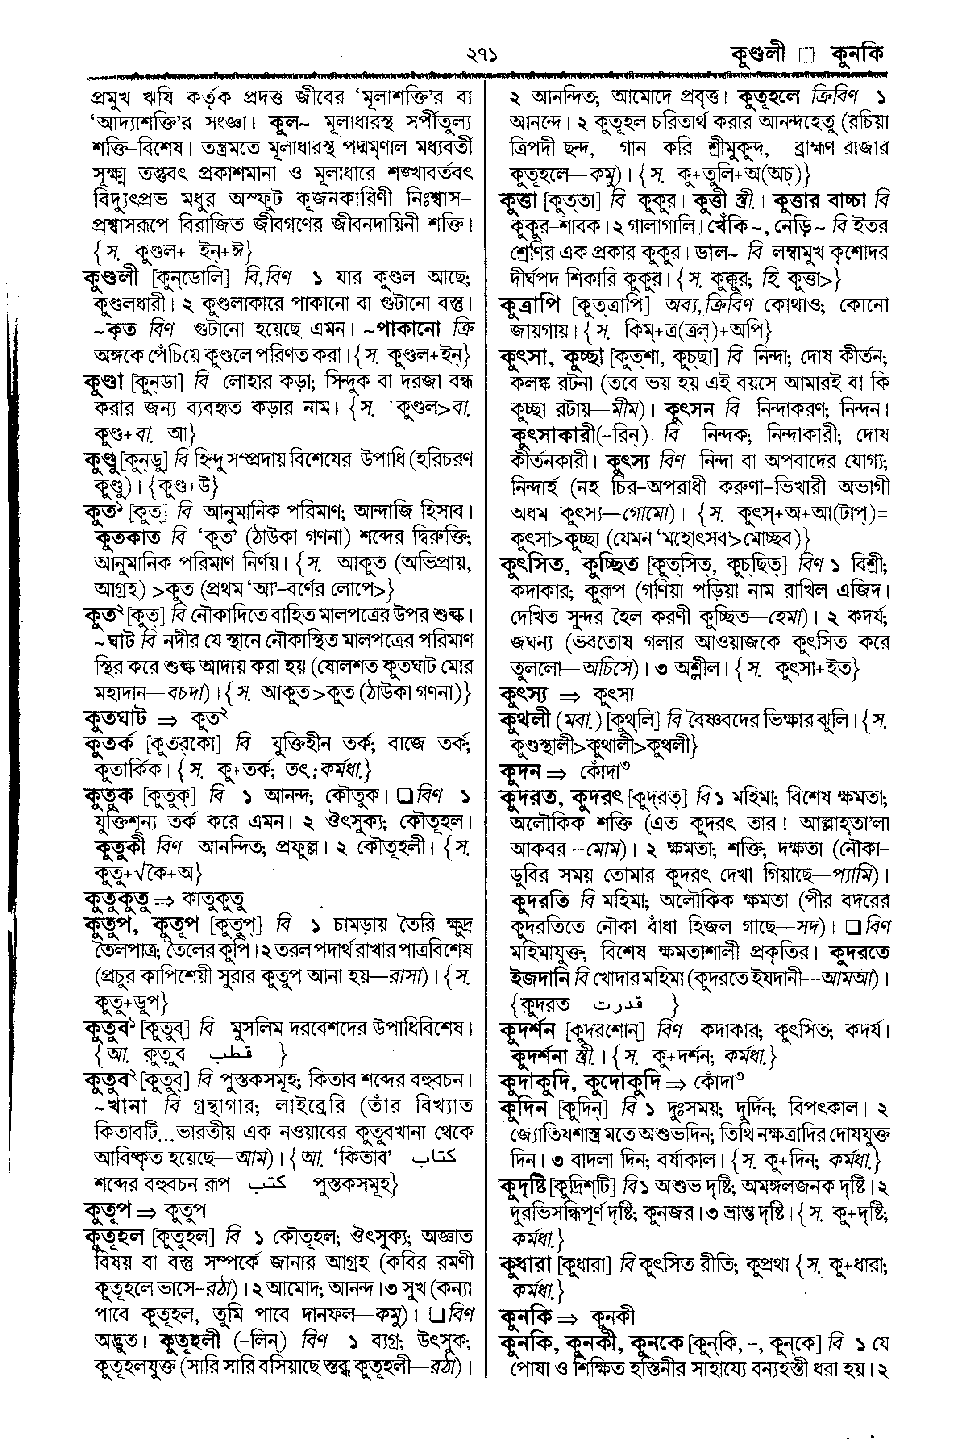 ২৭১
কুণ্ডলী □ কুনকি
প্রমুখ ঋষি কর্তৃক প্রদত্ত জীবের ‘মূলাশক্তি’র বা
‘আদ্যাশক্তি’র সংজ্ঞা। কুল~ মূলাধারস্থ সর্পীতুল্য
শক্তি-বিশেষ। তন্ত্রমতে মূলাধারস্থ পদ্মমৃণাল মধ্যবর্তী
সূক্ষ্ম তন্তুবৎ প্রকাশমানা ও মূলাধারে শঙ্খাবর্তবৎ
বিদ্যুৎপ্রভ মধুর অস্ফুট কূজনকারিণী নিঃশ্বাস-
প্রশ্বাসরূপে বিরাজিত জীবগণের জীবনদায়িনী শক্তি।
{স. কুণ্ডল+ ইন্+ঈ}
কুণ্ডলী [কুন্‌ডোলি] বি,বিণ ১ যার কুণ্ডল আছে;
কুণ্ডলধারী। ২ কুণ্ডলাকারে পাকানো বা গুটানো বস্তু।
~কৃত বিণ গুটানো হয়েছে এমন। ~পাকানো ক্রি
অঙ্গকে পেঁচিয়ে কুণ্ডলে পরিণত করা। {স. কুণ্ডল+ইন্}
কুণ্ডা [কুন্‌ডা] বি লোহার কড়া; সিন্দুক বা দরজা বন্ধ
করার জন্য ব্যবহৃত কড়ার নাম। {স. কুণ্ডল>বা.
কুণ্ড+বা. আ}
কুণ্ডু [কুন্‌ডু] বি হিন্দু সম্প্রদায় বিশেষের উপাধি (হরিচরণ
কুণ্ডু)। {কুণ্ড+উ}
কুত১ [কুত্] বি আনুমানিক পরিমাণ; আন্দাজি হিসাব।
কুতকাত বি ‘কুত’ (ঠাউকা গণনা) শব্দের দ্বিরুক্তি;
আনুমানিক পরিমাণ নির্ণয়। {স. আকুত (অভিপ্রায়,
আগ্রহ) >কুত (প্রথম ‘আ’-বর্ণের লোপে>}
কুত২ [কুত্] বি নৌকাদিতে বাহিত মালপত্রের উপর শুল্ক।
~ঘাট বি নদীর যে স্থানে নৌকাস্থিত মালপত্রের পরিমাণ
স্থির করে শুল্ক আদায় করা হয় (যোলশত কুতঘাট মোর
মহাদান—বচদা)। {স. আকুত>কুত (ঠাউকা গণনা)}
কুতঘাট ⇒ কুত২
কুতর্ক [কুতর্‌কো] বি যুক্তিহীন তর্ক; বাজে তর্ক;
কূতার্কিক। {স. কু+তর্ক; তৎ; কর্মধা.}
কুতুক [কুতুক্] বি ১ আনন্দ; কৌতুক। ❑ বিণ ১
যুক্তিশূন্য তর্ক করে এমন। ২ ঔৎসুক্য; কৌতূহল।
কুতুকী বিণ আনন্দিত; প্রফুল্ল। ২ কৌতূহলী। {স.
কুতু+√কৈ+অ}
কুতুকুতু ⇒ কাতুকুতু
কুতুপ, কুতূপ [কুতুপ্] বি ১ চামড়ায় তৈরি ক্ষুদ্র
তৈলপাত্র; তৈলের কুপি। ২ তরল পদার্থ রাখার পাত্রবিশেষ
(প্রচুর কাপিশেয়ী সুরার কুতুপ আনা হয়—রাসা)। {স.
কুতু+ডুপ}
কুতুব১ [কুতুব্] বি মুসলিম দরবেশদের উপাধিবিশেষ।
{আ. কুতুব قطب }
কুতুব২ [কুতুব্] বি পুস্তকসমূহ; কিতাব শব্দের বহুবচন।
~খানা বি গ্রন্থাগার; লাইব্রেরি (তাঁর বিখ্যাত
কিতাবটি...ভারতীয় এক নওয়াবের কুতুবখানা থেকে
আবিষ্কৃত হয়েছে—আম)। {আ. ‘কিতাব’ کتاب
শব্দের বহুবচন রূপ کتب পুস্তকসমূহ}
কুতূপ ⇒ কুতুপ
কুতূহল [কুতুহল্] বি ১ কৌতূহল; ঔৎসুক্য; অজ্ঞাত
বিষয় বা বস্তু সম্পর্কে জানার আগ্রহ (কবির রমণী
কুতূহলে ভাসে-রঠা)। ২ আমোদ; আনন্দ। ৩ সুখ (কন্যা
পাবে কুতূহল, তুমি পাবে দানফল—কমু)। ❑ বিণ
অদ্ভুত। কুতূহলী (-লিন্) বিণ ১ ব্যগ্র; উৎসুক;
কুতূহলযুক্ত (সারি সারি বসিয়াছে স্তব্ধ কুতূহলী—রঠা)।
২ আনন্দিত; আমোদে প্রবৃত্ত। কুতূহলে ক্রিবিণ ১
আনন্দে। ২ কুতূহল চরিতার্থ করার আনন্দহেতু (রচিয়া
ত্রিপদী ছন্দ, গান করি শ্রীমুকুন্দ, ব্রাহ্মণ রাজার
কুতূহলে—কমু)। {স. কু+তুলি+অ(অচ্)}
কুত্তা [কুত্‌তা] বি কুকুর। কুত্তী স্ত্রী.। কুত্তার বাচ্চা বি
কুকুর-শাবক। ২ গালাগালি। খেঁকি~, নেড়ি~ বি ইতর
শ্রেণির এক প্রকার কুকুর। ডাল~ বি লম্বামুখ কৃশোদর
দীর্ঘপদ শিকারি কুকুর। {স. কুক্কুর; হি. কুত্তা>}
কুত্রাপি [কুত্‌ত্রাপি] অব্য,ক্রিবিণ কোথাও; কোনো
জায়গায়। {স. কিম্+ত্র(ত্রল্)+অপি}
কুৎসা, কুচ্ছা [কুত্‌শা, কুচ্‌ছা] বি নিন্দা; দোষ কীর্তন;
কলঙ্ক রটনা (তবে ভয় হয় এই বয়সে আমারই বা কি
কুচ্ছা রটায়—মীম)। কুৎসন বি নিন্দাকরণ; নিন্দন।
কুৎসাকারী(-রিন্) বি নিন্দক; নিন্দাকারী; দোষ
কীর্তনকারী। কুৎস্য বিণ নিন্দা বা অপবাদের যোগ্য;
নিন্দার্হ (নহ চির-অপরাধী করুণা-ভিখারী অভাগী
অধম কুৎস্য—গোমো)। {স. কুৎস্+অ+আ(টাপ্)=
কুৎসা>কুচ্ছা (যেমন ‘মহোৎসব>মোচ্ছব)}
কুৎসিত, কুচ্ছিত [কুত্‌সিত্, কুচ্‌ছিত্] বিণ ১ বিশ্রী;
কদাকার; কুরূপ (গণিয়া পড়িয়া নাম রাখিল এজিদ।
দেখিত সুন্দর হৈল করণী কুচ্ছিত—হেমা)। ২ কদর্য;
জঘন্য (ভবতোষ গলার আওয়াজকে কুৎসিত করে
তুললো—অচিসে)। ৩ অশ্লীল। {স. কুৎসা+ইত}
কুৎস্য ⇒ কুৎসা
কুথলী (মবা.) [কুথ্‌লি] বি বৈষ্ণবদের ভিক্ষার ঝুলি। {স.
কুণ্ডস্থালী>কুথালী>কুথলী}
কুদন ⇒ কোঁদা৩
কুদরত, কুদরৎ [কুদ্‌রত্] বি ১ মহিমা; বিশেষ ক্ষমতা;
অলৌকিক শক্তি (এত কুদরৎ তার! আল্লাহতা’লা
আকবর—মোম)। ২ ক্ষমতা; শক্তি; দক্ষতা (নৌকা-
ডুবির সময় তোমার কুদরৎ দেখা গিয়াছে—প্যামি)।
কুদরতি বি মহিমা; অলৌকিক ক্ষমতা (পীর বদরের
কুদরতিতে নৌকা বাঁধা হিজল গাছে—সদ)। ❑ বিণ
মহিমাযুক্ত; বিশেষ ক্ষমতাশালী প্রকৃতির। কুদরতে
ইজদানি বি খোদার মহিমা (কুদরতে ইযদানী—আমআ)।
{কুদরত قدرت }
কুদর্শন [কুদর্‌শোন্] বিণ কদাকার; কুৎসিত; কদর্য।
কুদর্শনা স্ত্রী.। {স. কু+দর্শন; কর্মধা.}
কুদাকুদি, কুদোকুদি ⇒ কোঁদা৩
কুদিন [কুদিন্] বি ১ দুঃসময়; দুর্দিন; বিপৎকাল। ২
জ্যোতিষশাস্ত্র মতে অশুভদিন; তিথি নক্ষত্রাদির দোষযুক্ত
দিন। ৩ বাদলা দিন; বর্ষাকাল। {স. কু+দিন; কর্মধা.}
কুদৃষ্টি [কুদ্রিশ্‌টি] বি ১ অশুভ দৃষ্টি; অমঙ্গলজনক দৃষ্টি। ২
দুরভিসন্ধিপূর্ণ দৃষ্টি; কুনজর। ৩ ভ্রান্ত দৃষ্টি। {স. কু+দৃষ্টি;
কর্মধা.}
কুধারা [কুধারা] বি কুৎসিত রীতি; কুপ্রথা {স. কু+ধারা;
কর্মধা.}
কুনকি ⇒ কুনকী
কুনকি, কুনকী, কুনকে [কুন্‌কি, -, কুন্‌কে] বি ১ যে
পোষা ও শিক্ষিত হস্তিনীর সাহায্যে বন্যহস্তী ধরা হয়। ২